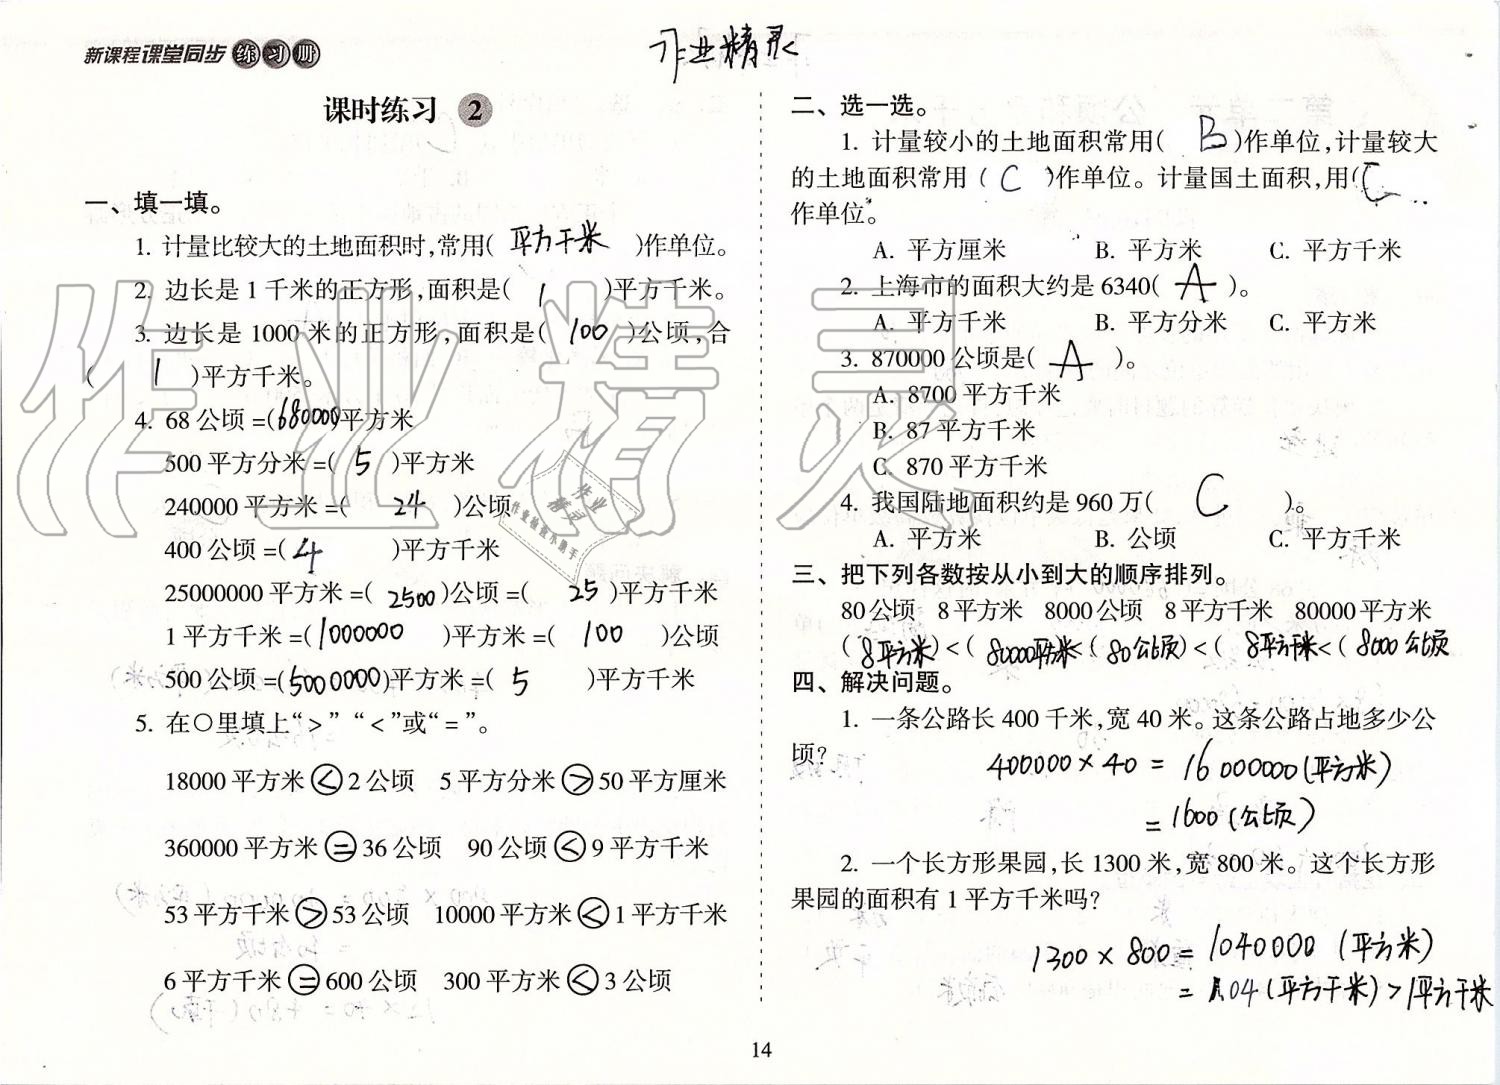 新课程课堂同步练习册
作业精灵
课时练习 2
一、填一填。
1. 计量比较大的土地面积时,常用( 平方千米 )作单位。
2. 边长是 1 千米的正方形,面积是( 1 )平方千米。
3. 边长是 1000 米的正方形,面积是( 100 )公顷,合
( 1 )平方千米。
4. 68 公顷 =(680000)平方米
500 平方分米 =( 5 )平方米
240000 平方米 =( 24 )公顷
400 公顷 =( 4 )平方千米
25000000 平方米 =( 2500 )公顷 =( 25 )平方千米
1 平方千米 =( 1000000 )平方米 =( 100 )公顷
500 公顷 =(5000000)平方米 =( 5 )平方千米
5. 在○里填上“>”“<”或“=”。
18000 平方米 < 2 公顷 5 平方分米 > 50 平方厘米
360000 平方米 = 36 公顷 90 公顷 < 9 平方千米
53 平方千米 > 53 公顷 10000 平方米 < 1 平方千米
6 平方千米 = 600 公顷 300 平方米 < 3 公顷
二、选一选。
1. 计量较小的土地面积常用( B )作单位,计量较大
的土地面积常用( C )作单位。计量国土面积,用( C
作单位。
A. 平方厘米 B. 平方米 C. 平方千米
2. 上海市的面积大约是 6340( A )。
A. 平方千米 B. 平方分米 C. 平方米
3. 870000 公顷是( A )。
A. 8700 平方千米
B. 87 平方千米
C. 870 平方千米
4. 我国陆地面积约是 960 万( C )。
A. 平方米 B. 公顷 C. 平方千米
三、把下列各数按从小到大的顺序排列。
80 公顷 8 平方米 8000 公顷 8 平方千米 80000 平方米
( 8平方米)<( 80000平方米<( 80公顷)<( 8平方千米<( 8000公顷
四、解决问题。
1. 一条公路长 400 千米,宽 40 米。这条公路占地多少公
顷?
400000 × 40 = 16000000(平方米)
= 1600(公顷)
2. 一个长方形果园,长 1300 米,宽 800 米。这个长方形
果园的面积有 1 平方千米吗?
1300 × 800 = 1040000 (平方米)
= 1.04(平方千米)>1平方千米
14
作业精灵
作业
精灵
作业检查小助手